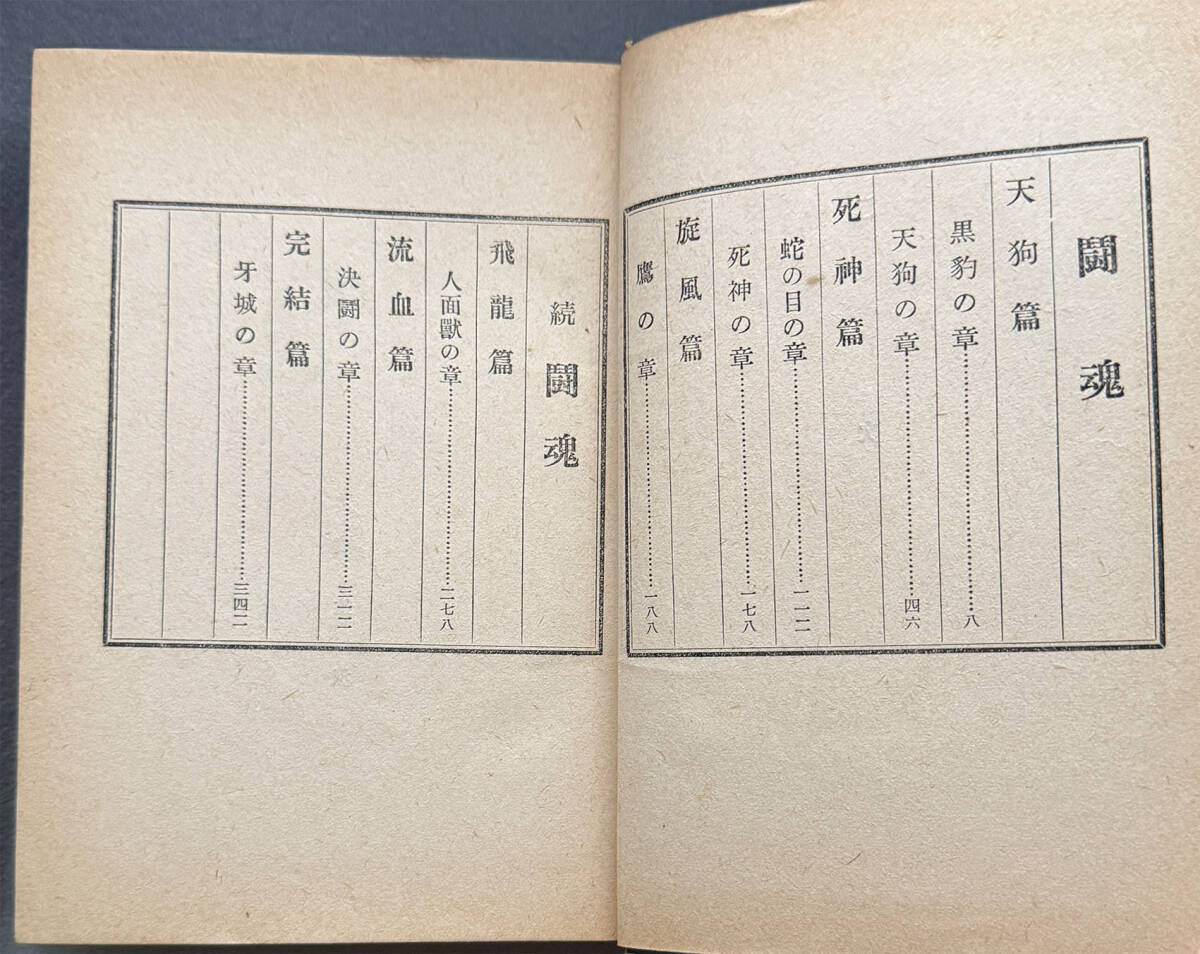 闘魂
天狗篇
黒豹の章…………………………八
天狗の章…………………………四六
死神篇
蛇の目の章…………………………一一二
死神の章…………………………一七八
旋風篇
鷹の章…………………………一八八
続闘魂
飛龍篇
人面獸の章…………………………二七八
流血篇
決闘の章…………………………三一二
完結篇
牙城の章…………………………三四二